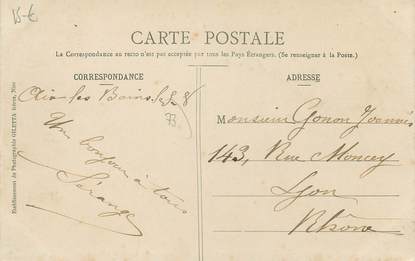 15-€
CARTE POSTALE
La Correspondance au recto n'est pas acceptée par tous les Pays Étrangers. (Se renseigner à la Poste.)
CORRESPONDANCE
ADRESSE
Aix les Bains le
73
Un bonjour à tous
Sérange
Monsieur Gonon Joannès
143, Rue Moncey
Lyon
Rhône
Etablissement de Photographie GILETTA frères, Nice